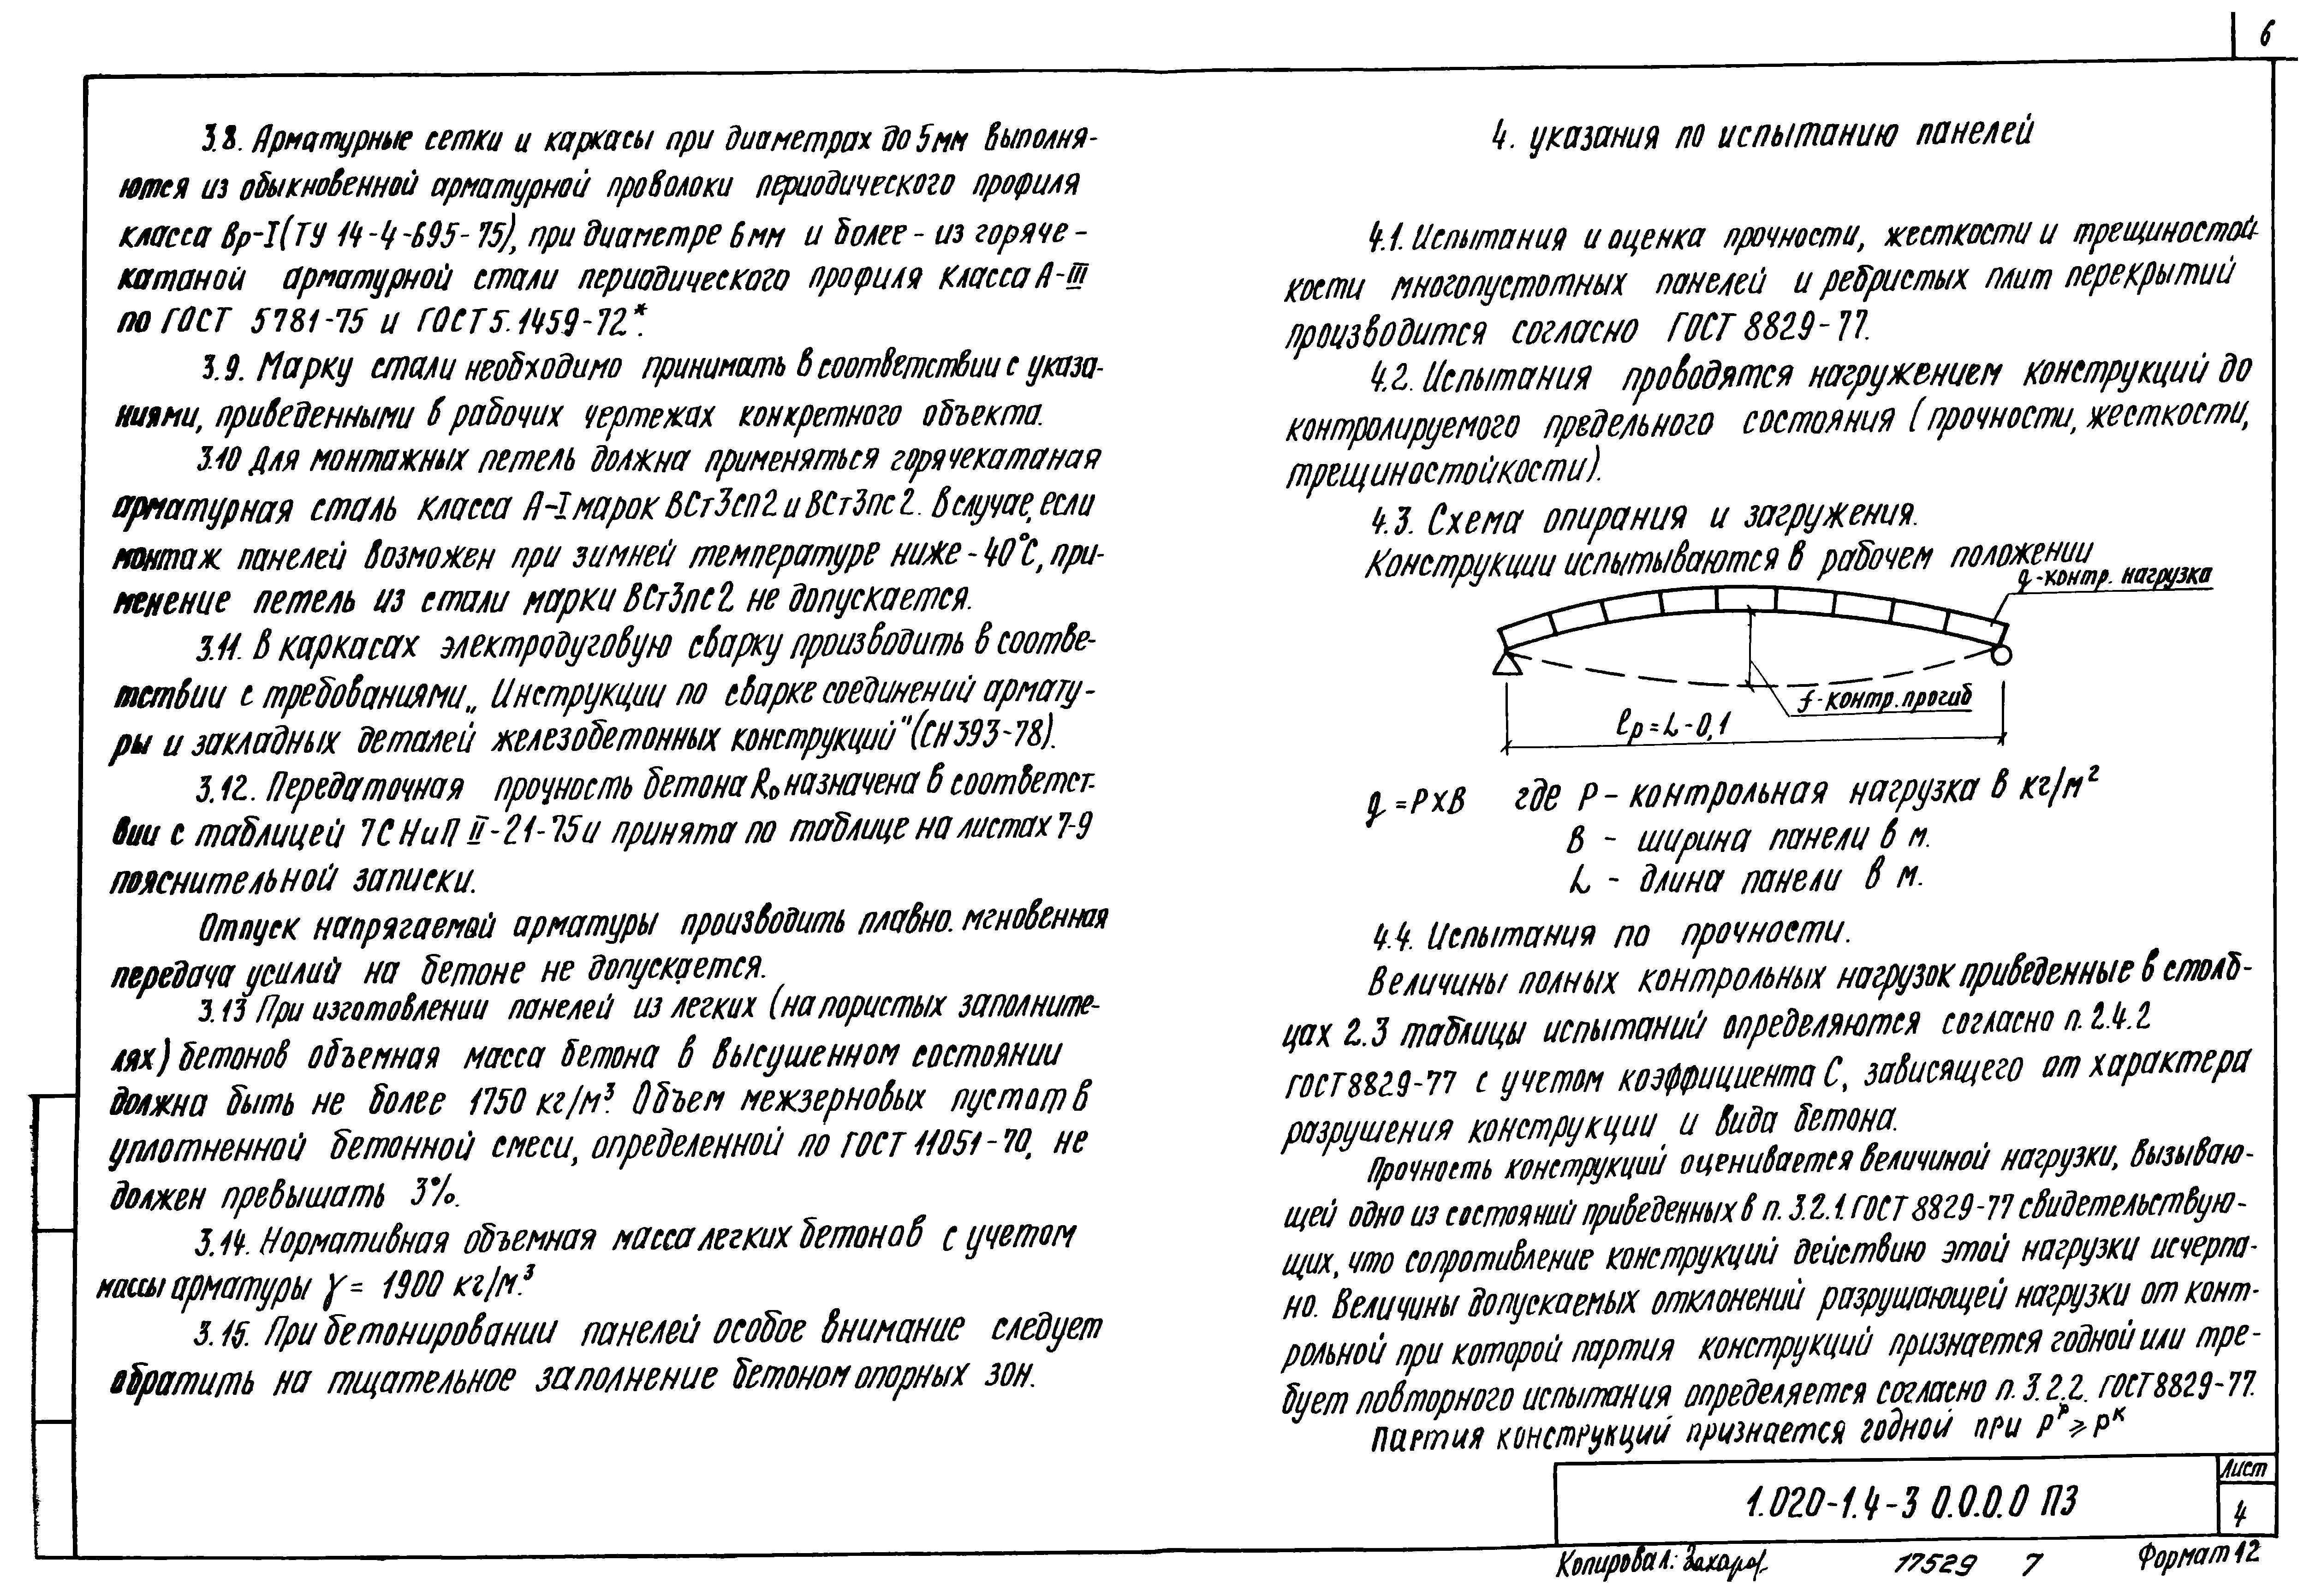 6
3.8. Арматурные сетки и каркасы при диаметрах до 5мм выполня-
ются из обыкновенной арматурной проволоки периодического профиля
класса Вр-I (ТУ 14-4-695-75), при диаметре 6мм и более - из горяче-
катаной арматурной стали периодического профиля класса А-III
по ГОСТ 5781-75 и ГОСТ 5.1459-72*.
3.9. Марку стали необходимо принимать в соответствии с указа-
ниями, приведенными в рабочих чертежах конкретного объекта.
3.10 Для монтажных петель должна применяться горячекатаная
арматурная сталь класса А-I марок ВСт3сп2 и ВСт3пс2. В случае, если
монтаж панелей возможен при зимней температуре ниже -40°С, при-
менение петель из стали марки ВСт3пс2 не допускается.
3.11. В каркасах электродуговую сварку производить в соотве-
тствии с требованиями „Инструкции по сварке соединений армату-
ры и закладных деталей железобетонных конструкций" (СН 393-78).
3.12. Передаточная прочность бетона R₀ назначена в соответст-
вии с таблицей 7 СНиП II-21-75 и принята по таблице на листах 7-9
пояснительной записки.
Отпуск напрягаемой арматуры производить плавно. мгновенная
передача усилий на бетоне не допускается.
3.13 При изготовлении панелей из легких (на пористых заполните-
лях) бетонов объемная масса бетона в высушенном состоянии
должна быть не более 1750 кг/м³. Объем межзерновых пустот в
уплотненной бетонной смеси, определенной по ГОСТ 11051-70, не
должен превышать 3%.
3.14. Нормативная объемная масса легких бетонов с учетом
массы арматуры γ = 1900 кг/м.³
3.15. При бетонировании панелей особое внимание следует
обратить на тщательное заполнение бетоном опорных зон.
4. указания по испытанию панелей
4.1. Испытания и оценка прочности, жесткости и трещиностой-
кости многопустотных панелей и ребристых плит перекрытий
производится согласно ГОСТ 8829-77.
4.2. Испытания проводятся нагружением конструкций до
контролируемого предельного состояния (прочности, жесткости,
трещиностойкости).
4.3. Схема опирания и загружения.
Конструкции испытываются в рабочем положении
q-контр. нагрузка
f-контр. прогиб
lр = L - 0,1
q = P x B где P - контрольная нагрузка в кг/м²
B - ширина панели в м.
L - длина панели в м.
4.4. Испытания по прочности.
Величины полных контрольных нагрузок приведенные в столб-
цах 2.3 таблицы испытаний определяются согласно п. 2.4.2
ГОСТ 8829-77 с учетом коэффициента С, зависящего от характера
разрушения конструкции и вида бетона.
Прочность конструкций оценивается величиной нагрузки, вызываю-
щей одно из состояний приведенных в п. 3.2.1. ГОСТ 8829-77 свидетельствую-
щих, что сопротивление конструкций действию этой нагрузки исчерпа-
но. Величины допускаемых отклонений разрушающей нагрузки от конт-
рольной при которой партия конструкций признается годной или тре-
бует повторного испытания определяется согласно п. 3.2.2. ГОСТ 8829-77.
Партия конструкций признается годной при Pᵖ ≥ Pᵏ
1.020-1.4-3 0.0.0.0 ПЗ
Лист
4
Копировал: Захаров
17529 7
Формат 12